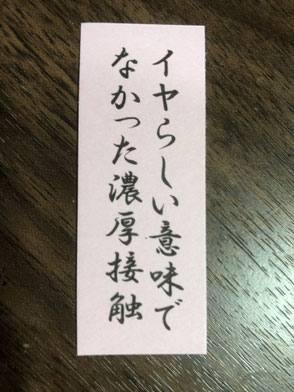 イヤらしい意味で
なかった濃厚接触